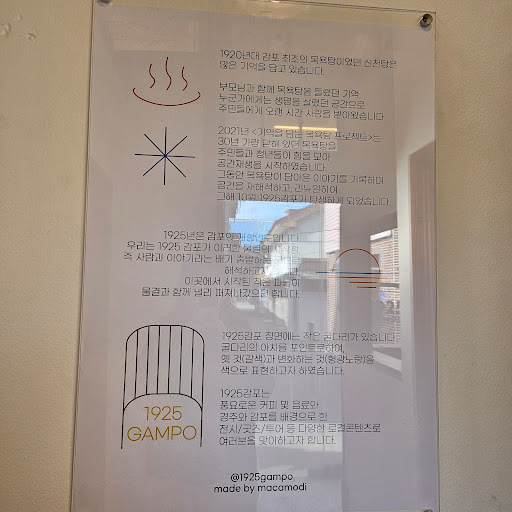 1920년대 감포 최초의 목욕탕이었던 신천탕은
많은 기억을 담고 있습니다.
부모님과 함께 목욕탕을 들렀던 기억
누군가에게는 생명을 살렸던 공간으로
주민들에게 오랜 시간 사랑을 받아왔습니다
2021년 <기억을 담은 목욕탕 프로젝트>는
30년 가량 닫혀 있던 목욕탕을
주민들과 청년들이 힘을 모아
공간재생을 시작하였습니다
그동안 목욕탕이 담아온 이야기를 기록하며
공간을 재해석하고, 리뉴얼하여
그해 10월 1925감포가 탄생하게 되었습니다.
1925년은 감포의
우리는 1925 감포가 이러한
즉 사람과 이야기라는 배가
해석하고자
이곳에서 시작된 작은
물결과 함께 널리 퍼져나갔으면 합니다.
1925감포 정면에는 작은 굴다리가 있습니다
굴다리의 아치를 포인트로하여,
옛 것(갈색)과 변화하는 것(형광노랑)을
색으로 표현하고자 하였습니다.
1925
GAMPO
1925감포는
풍요로운 커피 및 음료와
경주와 감포를 배경으로 한
전시/굿즈/투어 등 다양한 로컬콘텐츠로
여러분을 맞이하고자 합니다.
@1925gampo
made by macamodi